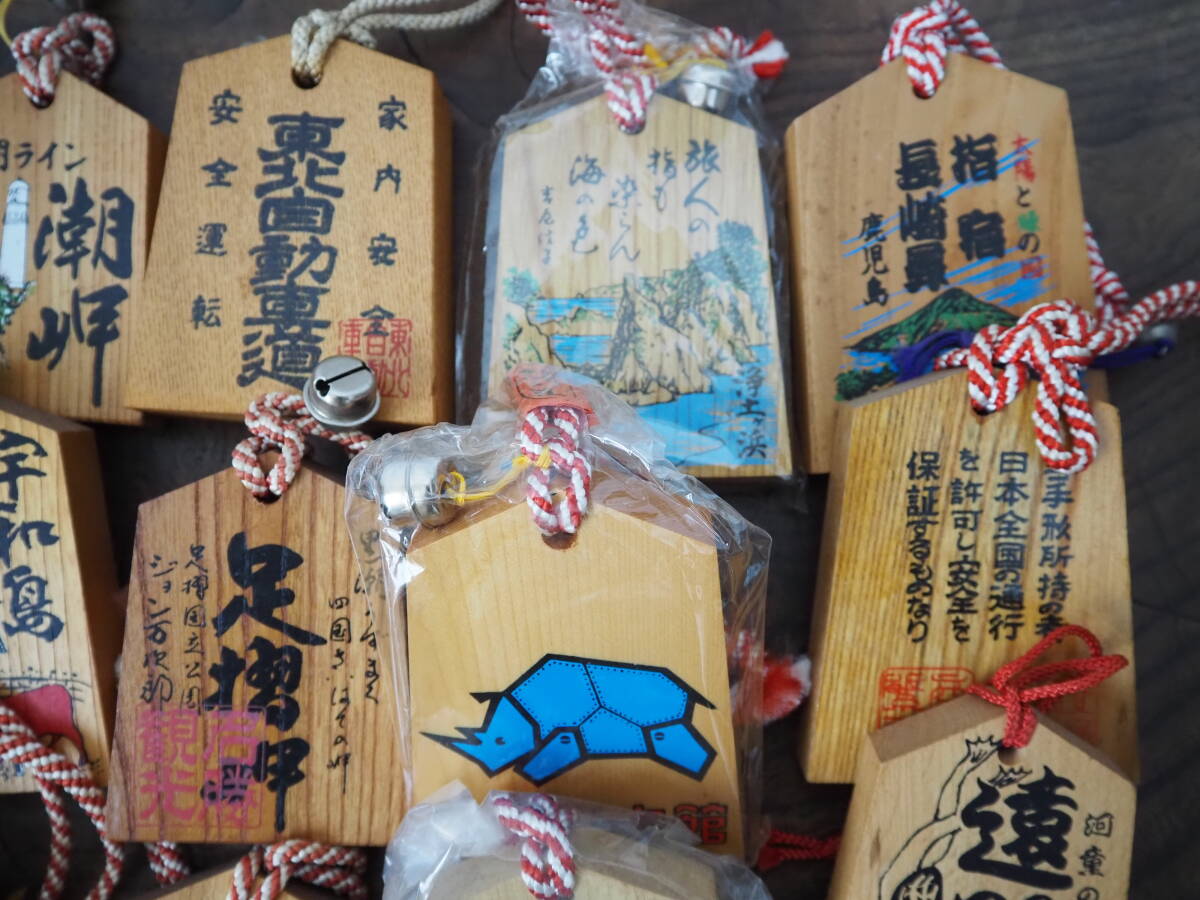 潮岬
家内安全
東北自動車道
安全運転
東北
自動
車
旅人の
指も
染らん
海の色
浄土ヶ浜
太陽と緑の国
指宿
長崎鼻
鹿児島
宇和島
四国さいはての岬
足摺岬
足摺国立公園
ジョン万次郎
観光
館
手形所持の者
日本全国の通行
を許可し安全を
保証するものなり
河童の
遠